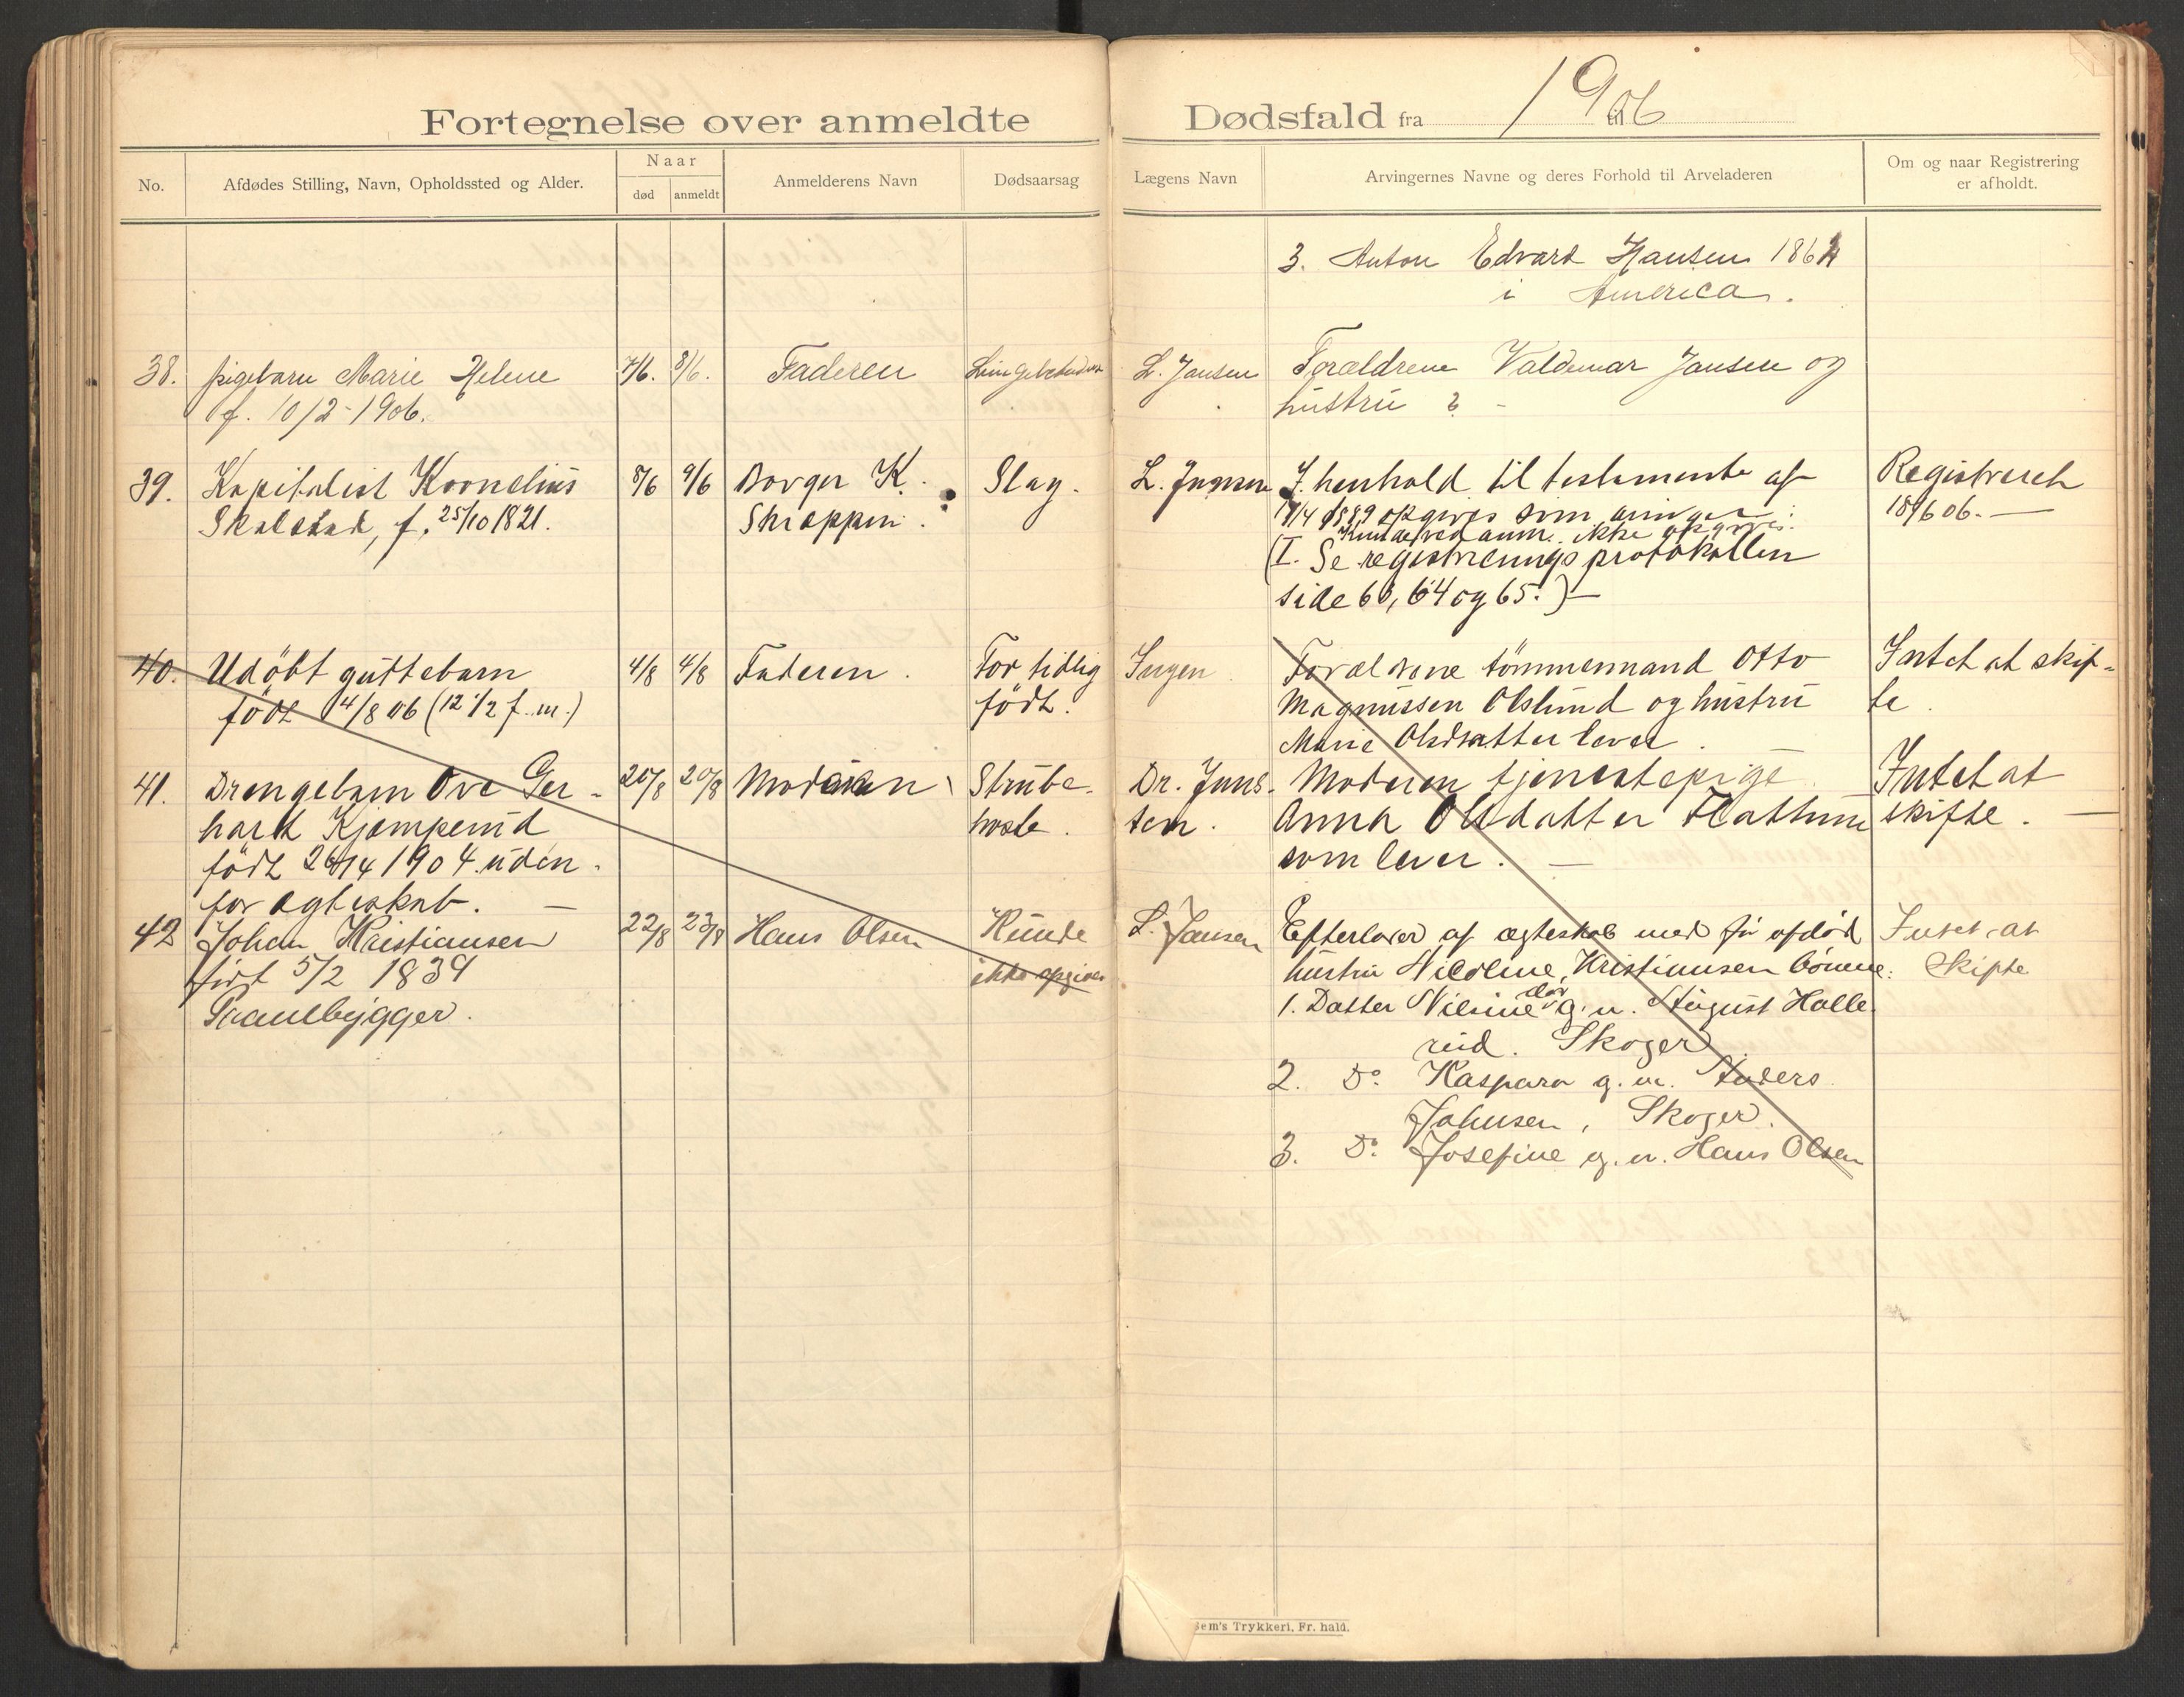 Fortegnelse over anmeldte Dødsfald fra 1906 til
No.
Afdødes Stilling, Navn, Opholdssted og Alder.
Naar
død
anmeldt
Anmelderens Navn
Dødsaarsag
Lægens Navn
Arvingernes Navne og deres Forhold til Arveladeren
Om og naar Registrering
er afholdt.
3. Anton Edvard Hansen 1864
i America.
38. pigebarn Marie Helene 7/6. 8/6. Faderen L. Jansen Forældrene Valdemar Jansen og
f. 10/2-1906. hustru ? -
39. Kapitalist Kornelius 8/6 9/6 Borger K. Slag. L. Jansen I henhold til testamente af Registrereh
Skalstad, f. 25/10 1821. Skroppen. 17/4 1889 opgives som arvinger: 18/6 06. —
ved anm. ikke opgives.
(I. Se registreringsprotokollen
side 63, 64 og 65.) —
40. Udöbt guttebarn 4/8 4/8 Faderen. For tidlig Ingen Forældrene tömmermand Otto Intet at skif-
födt 4/8 06 (12 1/2 f.m.) födt. Magnussen Olslund og hustru te.
Marie Olsdatter lever.
41. Drengebarn Ove Ger- 20/8 20/8 Moderen Strube- Dr. Jans- Moderen tjenestepige Intet at
hard Kjempenid hoste. sen. Anna Olsdatter Flattum skifte. —
födt 26/4 1904 uden- som lever. —
for ægteskab. —
42 Johan Kristiansen 22/8 23/8 Hans Olsen Kunde L. Jansen Efterlader af ægteskab med för afdöd Intet at
födt 5/2 1839 ikke opgives hustru Nicoline Kristiansen börnene: Skifte
Graaelbygger. 1. Datter Nilsine g.m. August Halle-
rud. Skoger
2. Do Kaspara g.m. Anders
Johnsen, Skoger.
3. Do Josefine g.m. Hans Olsen
Sem's Trykkeri, Fr. hald.